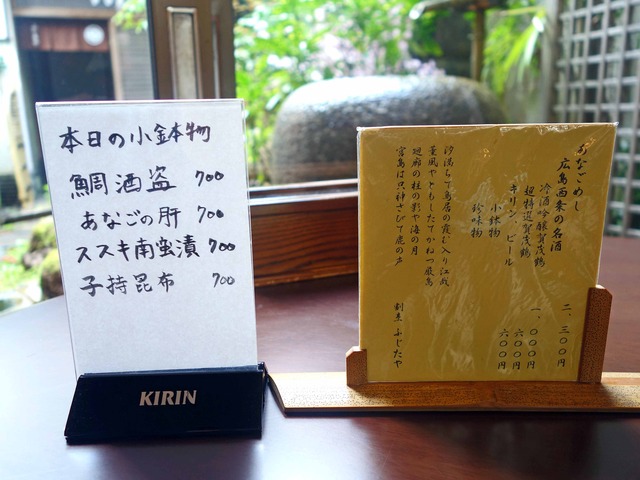 本日の小鉢物
鯛酒盗 700
あなごの肝 700
ススキ南蛮漬 700
子持昆布 700
KIRIN
あなごめし 二、三〇〇円
広島西条の名酒
冷酒吟醸賀茂鶴 一、〇〇〇円
超特選賀茂鶴
キリン、ビール 六〇〇円
小鉢物 六〇〇円
珍味物
汐満ちて鳥居の霞む入り江哉
薫風やともしたてかねつ厳島
廻廊の柱の影や海の月
宮島は只神さびて鹿の声
割烹 ふじたや